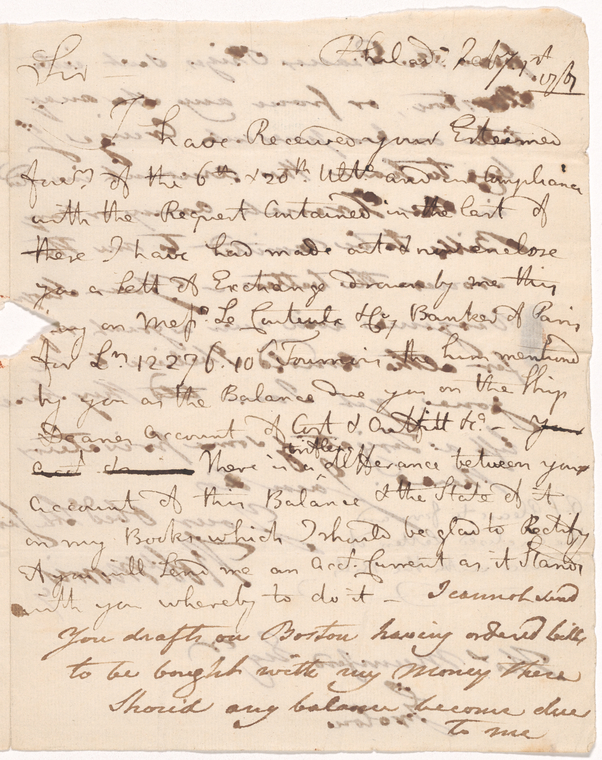 Sir Philad. Feby 7th 1787
I have Received your Esteemed
fav.rs of the 6th & 20th Ult.o and in Compliance
with the Request Contained in the last of
these I have had made out & now enclose
you a Sett of Exchange drawn by me this
day on Mess.rs Le Couteulx & Co. Bankers of Paris
for L.rs 12276.10 Tournois the sum mentioned
by you as the Balance due you on the Ship
Deanes account of Cost & Outfitt &c. — Your
There is a trifling differance between your
account of this Balance & the State of it
on my Books which I should be glad to Rectify
if you will Send me an acct. Current as it Stands
with you whereby to do it — I cannot send
You drafts on Boston having ordered bills
to be bought with my Money there
Should any balance become due
to me